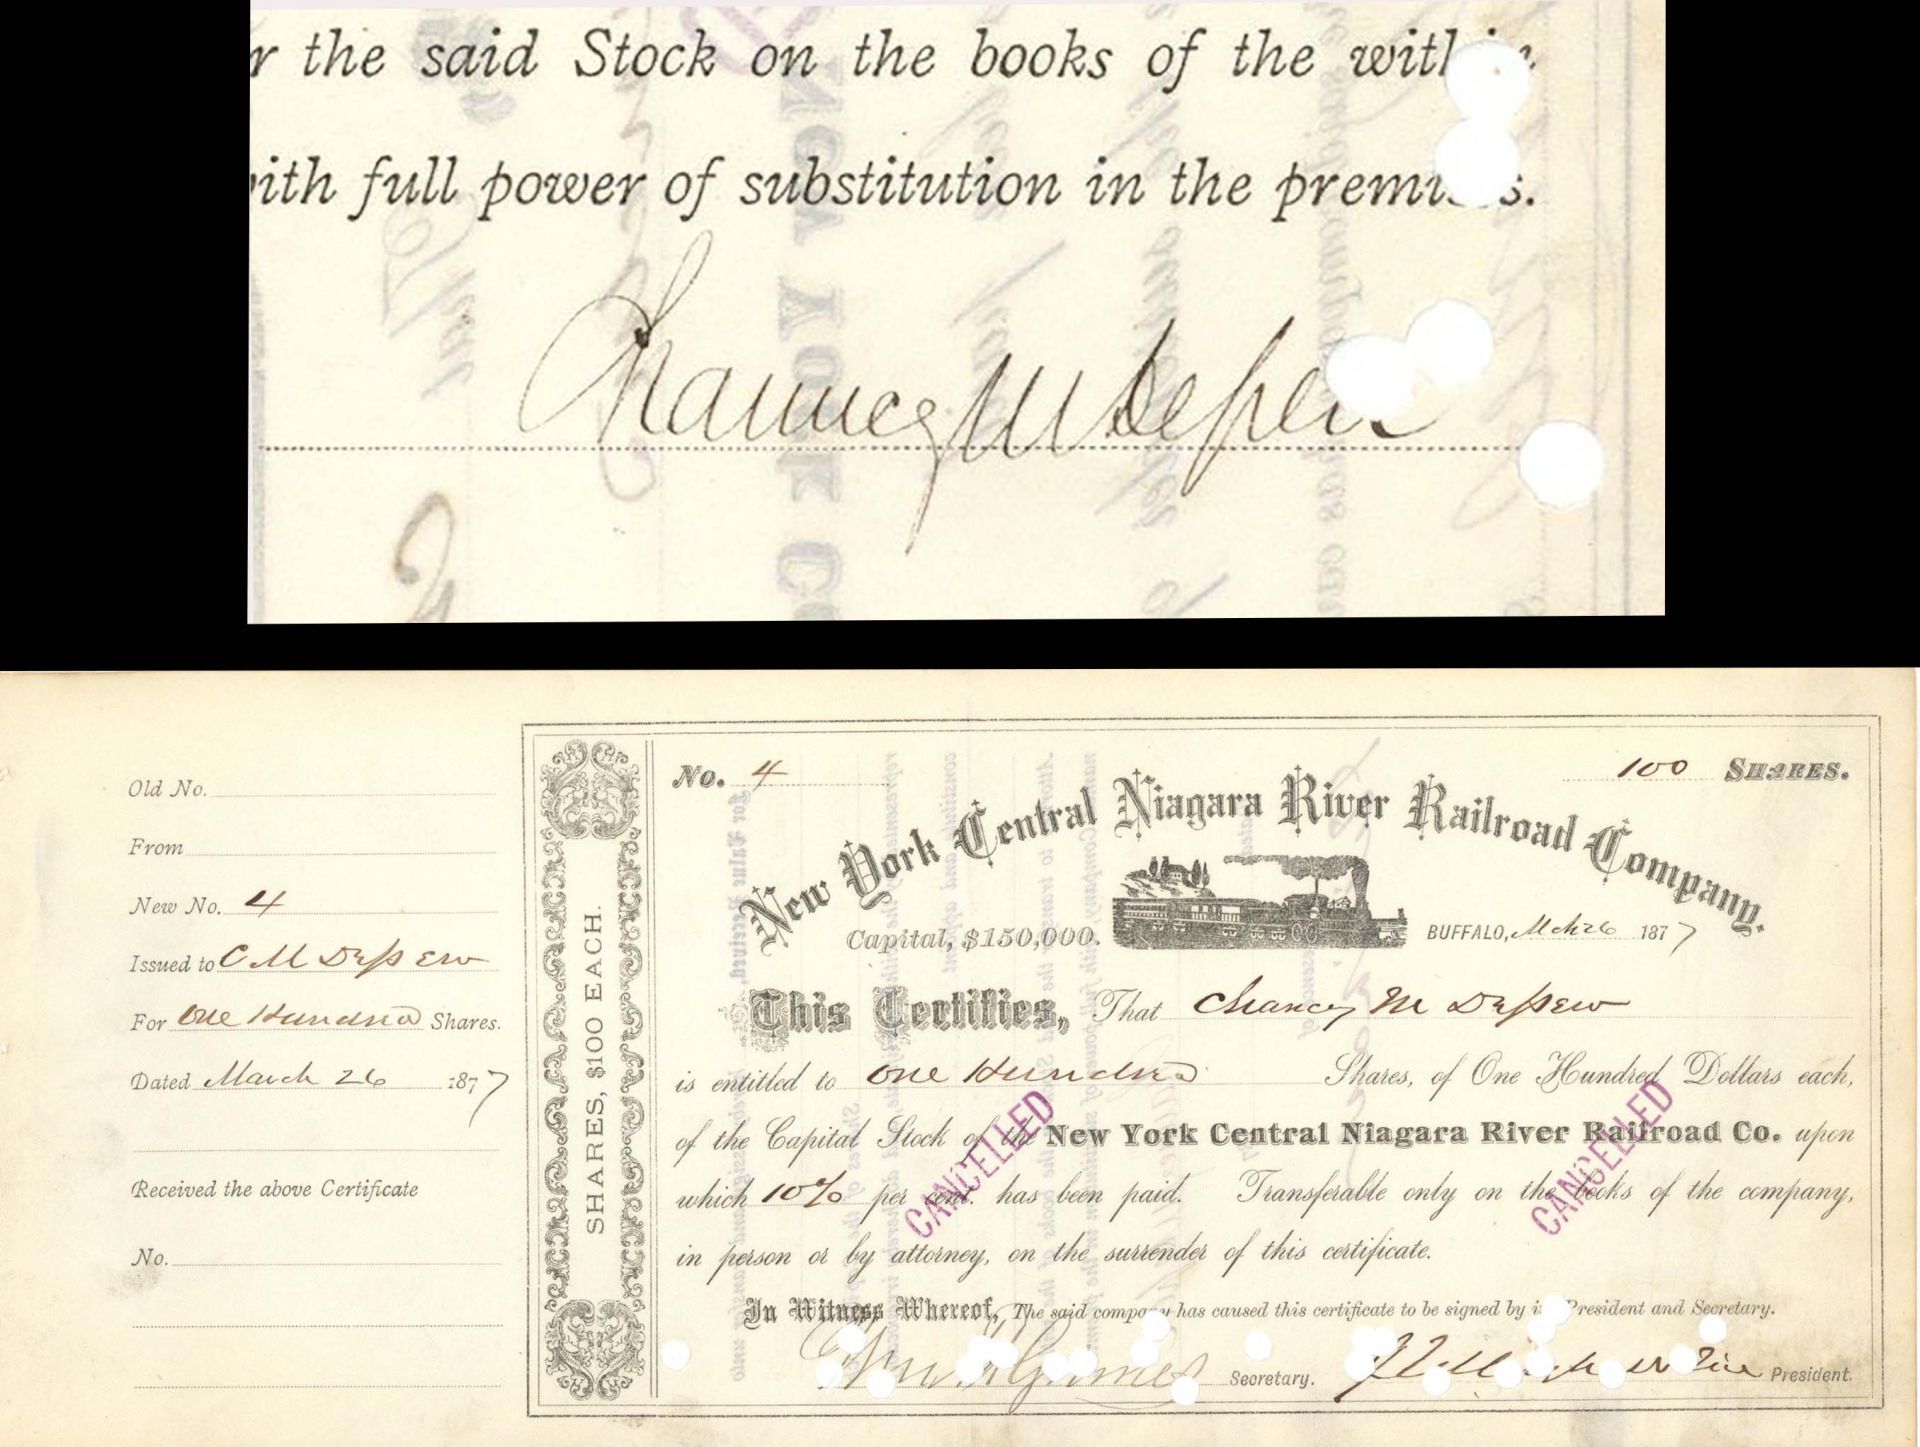 r the said Stock on the books of the within
with full power of substitution in the premises.
Chauncey M Depew
Old No.
From
New No. 4
Issued to C M Depew
For One Hundred Shares.
Dated March 26 1877
Received the above Certificate
No.
SHARES, $100 EACH.
No. 4
100 SHARES.
New York Central Niagara River Railroad Company.
Capital, $150,000.
BUFFALO, Mch 26 1877
This Certifies, That Chancey M Depew
is entitled to One Hundred Shares, of One Hundred Dollars each,
of the Capital Stock of the New York Central Niagara River Railroad Co. upon
which 10% per cent. has been paid. Transferable only on the books of the company,
in person or by attorney, on the surrender of this certificate.
CANCELLED
CANCELLED
In Witness Whereof, The said company has caused this certificate to be signed by its President and Secretary.
Secretary.
President.